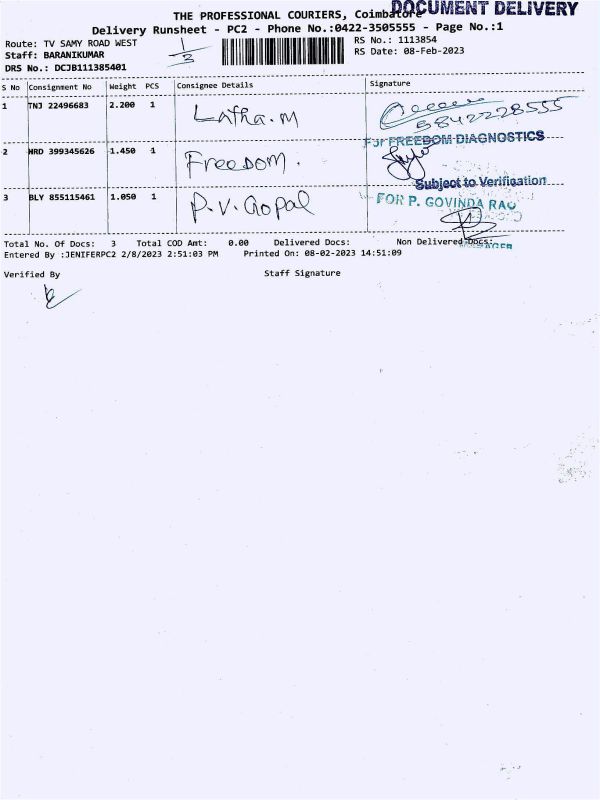 DOCUMENT DELIVERY
THE PROFESSIONAL COURIERS, Coimbatore
Delivery Runsheet - PC2 - Phone No.:0422-3505555 - Page No.:1
Route: TV SAMY ROAD WEST
1/3
RS No.: 1113854
Staff: BARANIKUMAR
RS Date: 08-Feb-2023
DRS No.: DCJB111385401
S No Consignment No Weight PCS Consignee Details Signature
1 TNJ 22496683 2.200 1 Latha.M
9842228555
For FREEDOM DIAGNOSTICS
2 HRD 399345626 1.450 1 Freedom.
Subject to Verification
3 BLY 855115461 1.050 1 P.V.Gopal
FOR P. GOVINDA RAO
MANAGER
Total No. Of Docs: 3 Total COD Amt: 0.00 Delivered Docs: Non Delivered Docs:
Entered By :JENIFERPC2 2/8/2023 2:51:03 PM Printed On: 08-02-2023 14:51:09
Verified By Staff Signature